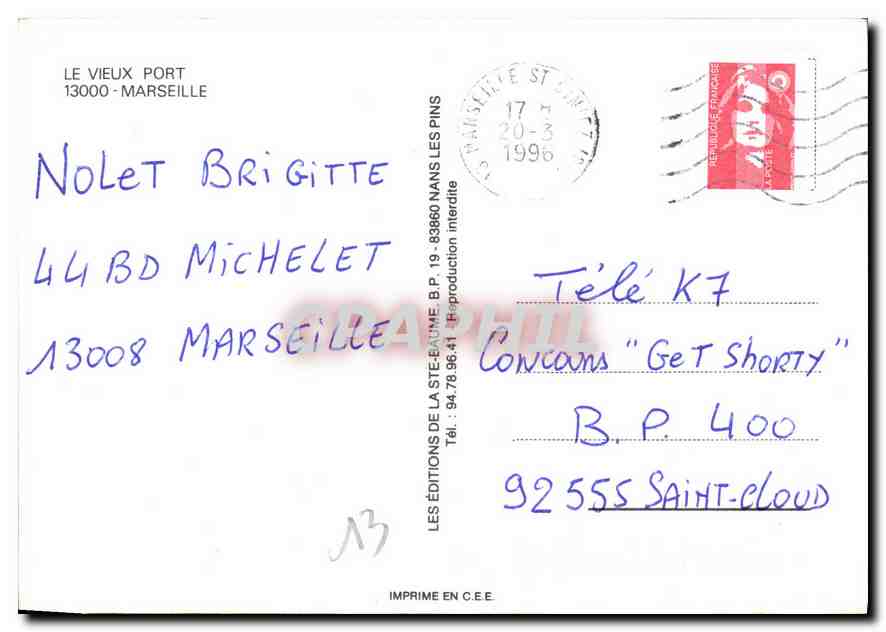 LE VIEUX PORT
13000 - MARSEILLE
NOLET BRIGITTE
44 BD MICHELET
13008 MARSEILLE
13
LES ÉDITIONS DE LA STE-BAUME, B.P. 19 - 83860 NANS LES PINS
Tél. : 94.78.96.41 Reproduction interdite
MARSEILLE ST
17
20-3
1996
13
RÉPUBLIQUE FRANÇAISE
LA POSTE
Télé K7
Concours "GET SHORTY"
B. P. 400
92555 SAINT-CLOUD
IMPRIME EN C.E.E.
GRAPHIL